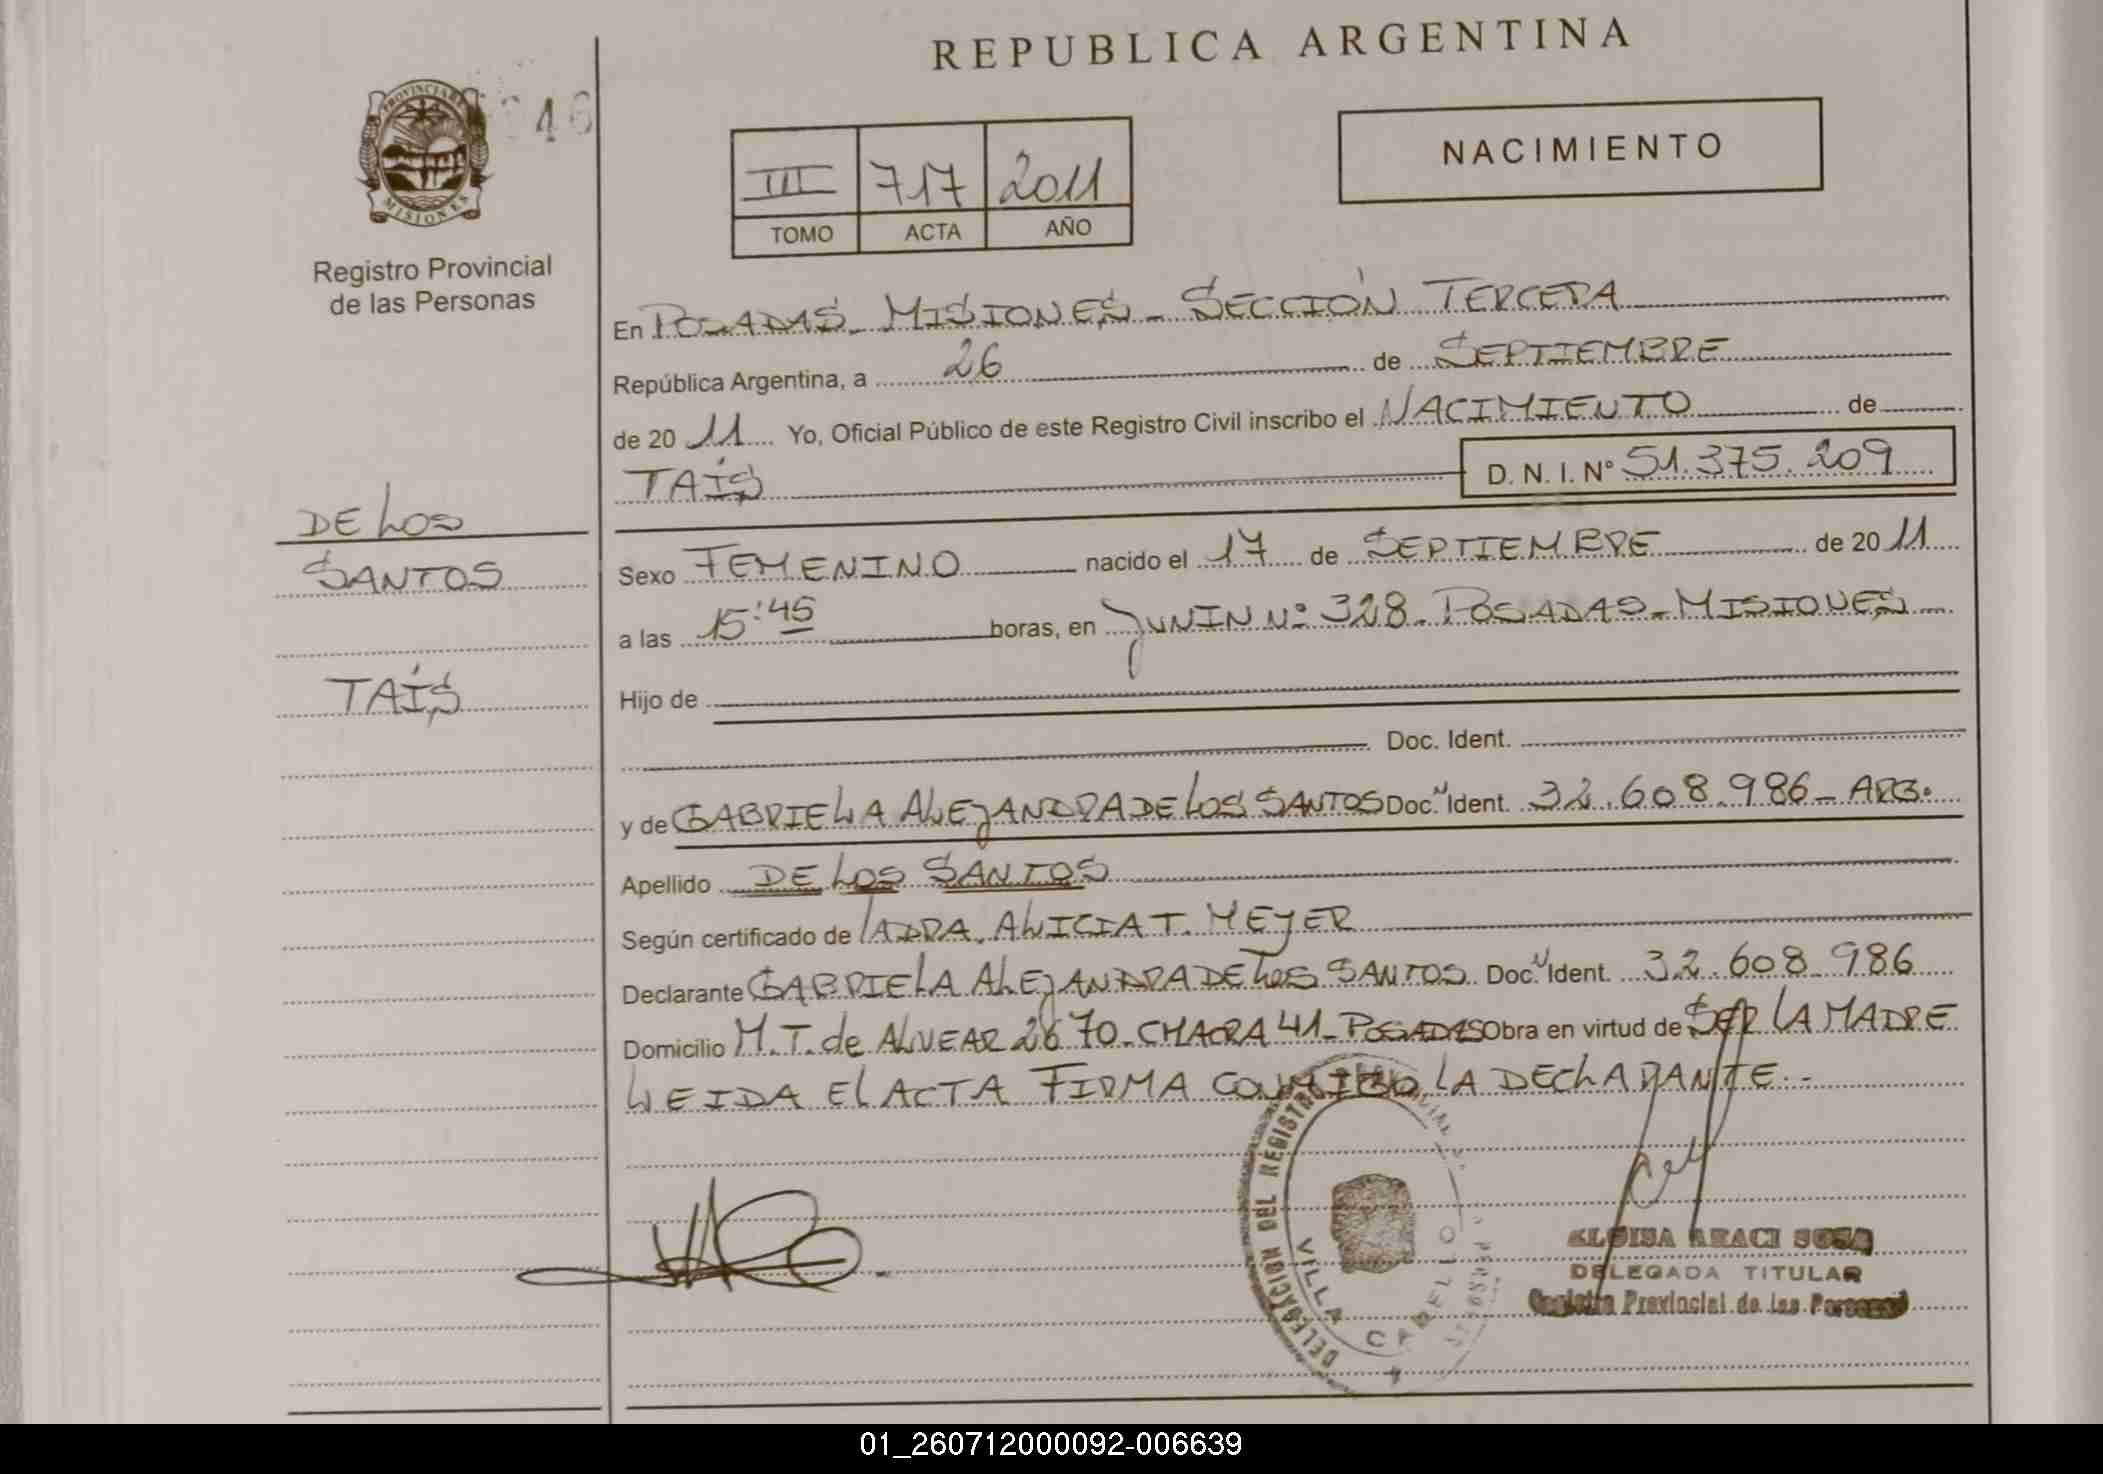 REPUBLICA ARGENTINA
PROVINCIA DE MISIONES
046
Registro Provincial
de las Personas
NACIMIENTO
III 717 2011
TOMO ACTA AÑO
En POSADAS - MISIONES - SECCIÓN TERCERA
República Argentina, a 26 de SEPTIEMBRE
de 20 11 Yo, Oficial Público de este Registro Civil inscribo el NACIMIENTO de
TAÍS D. N. I. Nº 51.375.209
DE LOS
SANTOS
TAÍS
Sexo FEMENINO nacido el 17 de SEPTIEMBRE de 20 11
a las 15:45 horas, en JUNIN Nº 328 - POSADAS - MISIONES
Hijo de
Doc. Ident.
y de GABRIELA ALEJANDRA DE LOS SANTOS Doc. Ident. 32.608.986 - ARG.
Apellido DE LOS SANTOS
Según certificado de LA DRA. ALICIA T. MEYER
Declarante GABRIELA ALEJANDRA DE LOS SANTOS Doc. Ident. 32.608.986
Domicilio M.T. de ALVEAR 2670 - CHACRA 41 - POSADAS Obra en virtud de SER LA MADRE
LEIDA EL ACTA FIRMA CONMIGO LA DECLARANTE.-
DELEGACION DEL REGISTRO
VILLA CABELLO
ELOISA ARACI SOSA
DELEGADA TITULAR
Registro Provincial de las Personas
01_260712000092-006639